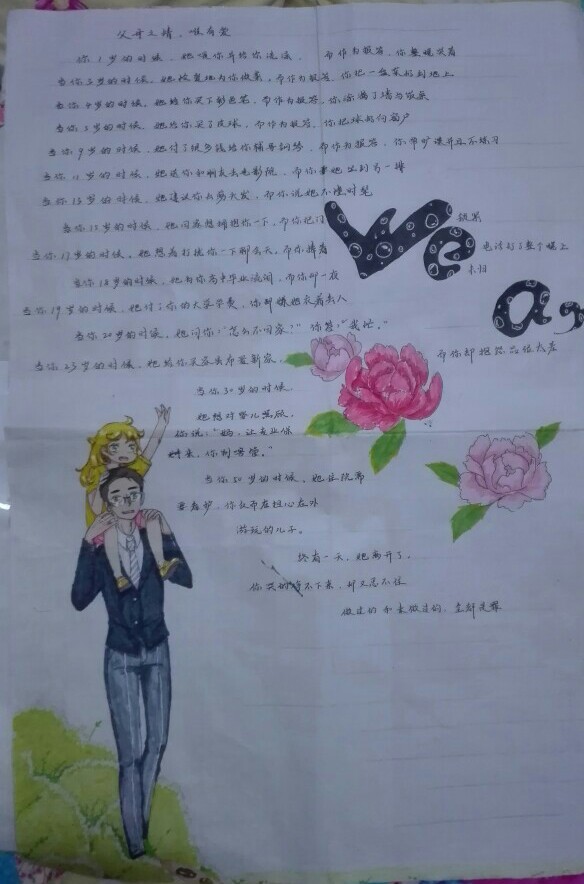 父母之情，唯有爱
你1岁的时候，她喂你并给你洗澡，而作为报答，你整晚哭着
当你3岁的时候，她慈爱地为你做菜，而作为报答，你把一盘菜扔到地上
当你4岁的时候，她给你买下彩色笔，而作为报答，你涂满了墙与饭桌
当你5岁的时候，她给你买了皮球，而作为报答，你把球扔向窗户
当你9岁的时候，她付了很多钱给你辅导钢琴，而作为报答，你常旷课并从不练习
当你11岁的时候，她送你和朋友去电影院，而你要她坐到另一排
当你13岁的时候，她建议你去剪头发，而你说她不懂时髦
当你15岁的时候，她回家想拥抱你一下，而你把门 锁紧
当你17岁的时候，她想着打扰你一下聊会天，而你 电话打了整个晚上
当你18岁的时候，她为你高中毕业流泪，而你却一夜 未归
当你19岁的时候，她付了你的大学学费，你却嫌她衣着丢人
当你20岁的时候，她问你：“怎么不回家？”你答：“我忙。”
当你25岁的时候，她给你买家具布置新家， 而你却抱怨品位太差
当你30岁的时候
她想对婴儿照顾，
你说：“妈，让专业保
姆来，你别管。”
当你50岁的时候，她住院需
要看护，你反而在担心在外
游玩的儿子。
终有一天，她离开了，
你突然不下来，却又忍不住
做过的和未做过的，全部灵
We
a